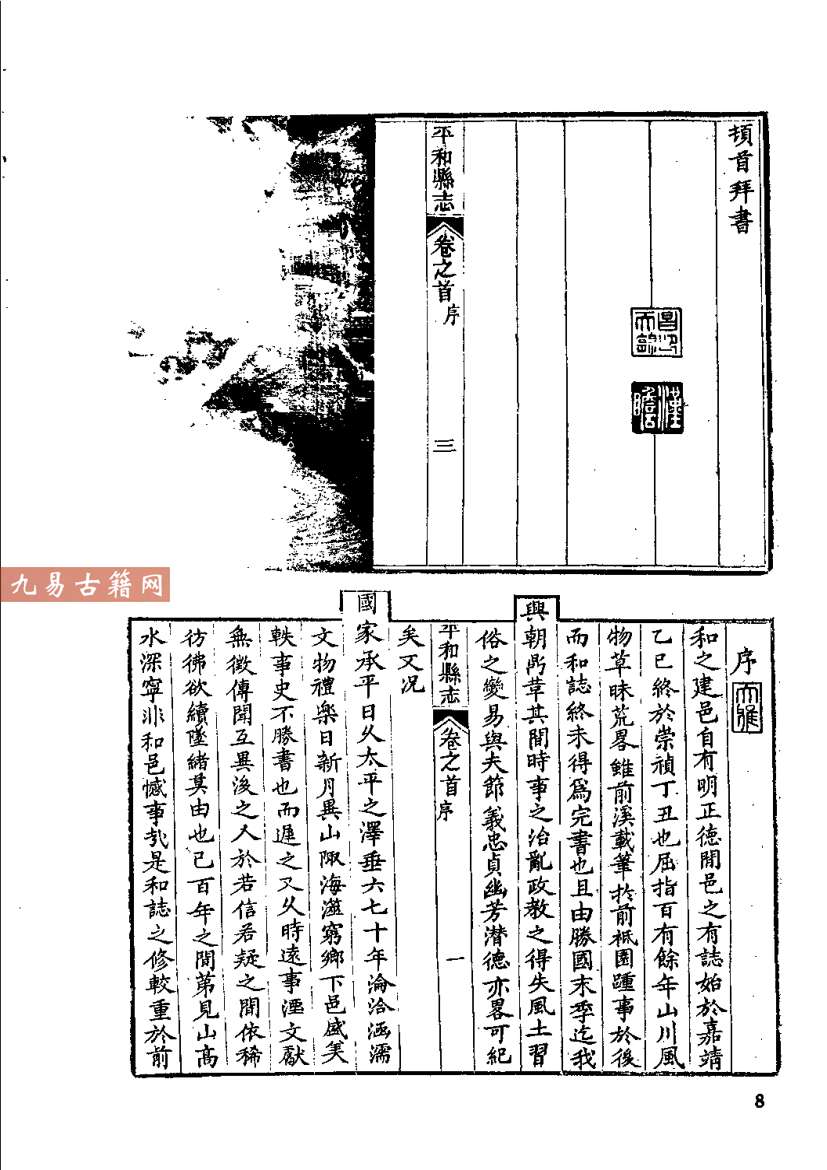 頓首拜書
平和縣志
卷之首序
三
九易古籍网
序
和之建邑自有明正德間邑之有誌始於嘉靖
乙巳終於崇禎丁丑也屈指百有餘年山川風
物草昧荒畧雖前溪載筆於前祗園踵事於後
而和誌終未得為完書也且由勝國末季迄我
興朝鼎革其間時事之治亂政教之得失風土習
俗之變易與夫節義忠貞幽芳潛德亦畧可紀
平和縣志
卷之首序
一
矣又况
國家承平日久太平之澤垂六七十年淪洽涵濡
文物禮樂日新月異山陬海澨窮鄉下邑盛美
軼事史不勝書也而遲之又久時遠事湮文獻
無徵傳聞互異後之人於若信若疑之間依稀
彷彿欲續墜緒莫由也已百年之間第見山高
水深寧非和邑憾事哉是和誌之修較重於前
8